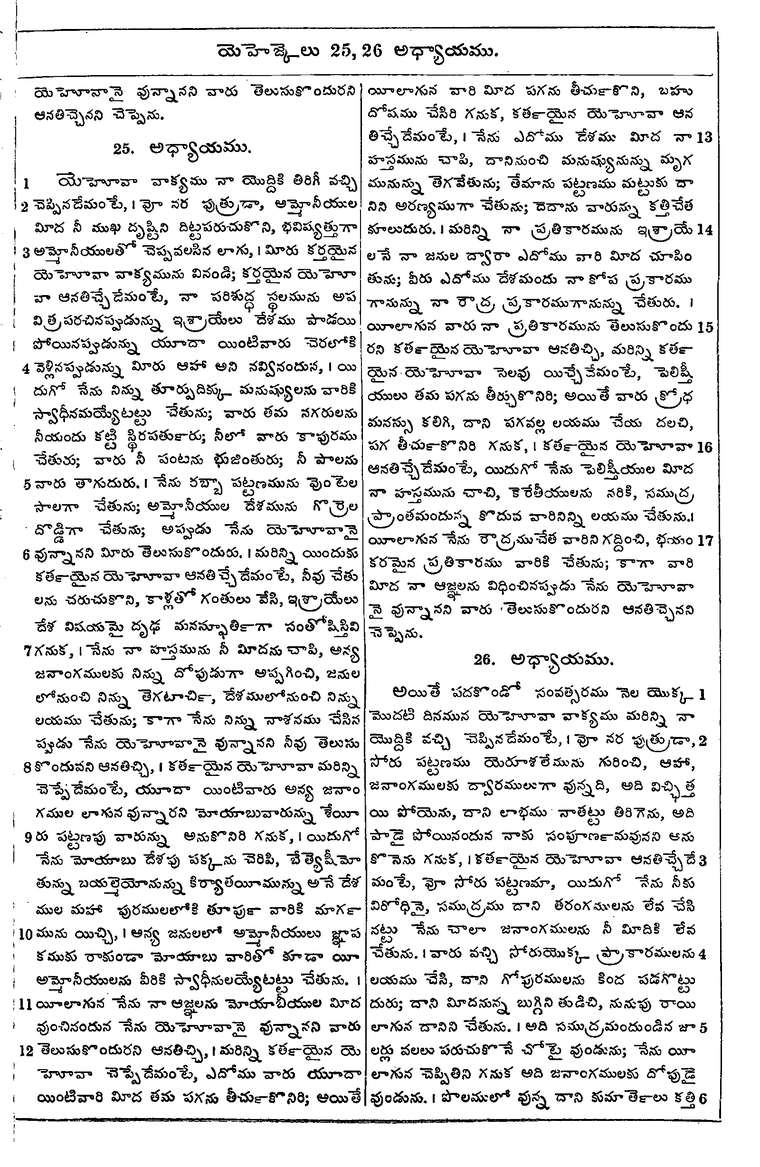 యెహెజ్కేలు 25, 26 అధ్యాయము.
యెహోవానై వున్నానని వారు తెలుసుకొందురని
ఆనతిచ్చెనని చెప్పెను.
25. అధ్యాయము.
1 యెహోవా వాక్యము నా యొద్దికి తిరిగీ వచ్చి
2 చెప్పినదేమంటే, । వోా నర పుత్రుడా, అమ్మోనీయుల
మీద నీ ముఖ దృష్టిని దిట్టపరుచుకొని, భవిష్యత్తుగా
3 అమ్మోనీయులతో చెప్పవలసిన లాగు, । మీరు కర్తయైన
యెహోవా వాక్యమును వినండి; కర్తయైన యెహో
వా ఆనతిచ్చేదేమంటే, నా పరిశుద్ధ స్థలమును అప
విత్రపరచినప్పుడున్ను ఇశ్రాయేలు దేశము పాడయి
పోయినప్పుడున్ను యూదా యింటివారు చెరలోకి
4 వెళ్లినప్పుడున్ను మీరు ఆహా అని నవ్వినందున, । యి
దుగో నేను నిన్ను తూర్పుదిక్కు మనుష్యులను వారికి
స్వాధీనమయ్యేటట్టు చేతును; వారు తమ నగరులను
నీయందు కట్టి స్థిరపతురు; నీలో వారు కాపురము
చేతురు; వారు నీ పంటను భుజింతురు; నీ పాలను
5 వారు తాగుదురు. । నేను రబ్బా పట్టణమును వుంటెల
సాలగా చేతును; అమ్మోనీయుల దేశమును గొర్రెల
దొడ్డిగా చేతును; అప్పుడు నేను యెహోవానై
6 వున్నానని మీరు తెలుసుకొందురు. । మరిన్ని యిందుకు
కర్తయైన యెహోవా ఆనతిచ్చేదేమంటే, నీవు చేతు
లను చరుచుకొని, కాళ్లతో గంతులు వేసి, ఇశ్రాయేలు
దేశ విషయమై దృఢ మనస్ఫూర్తిగా సంతోషిస్తివి
7 గనుక, । నేను నా హస్తమును నీ మీదను చాపి, అన్య
జనాంగములకు నిన్ను దోపుడుగా అప్పగించి, జనుల
లోనుంచి నిన్ను తెగటార్చి, దేశములోనుంచి నిన్ను
లయము చేతును; కాగా నేను నిన్ను నాశనము చేసిన
ప్పుడు నేను యెహోవానై వున్నానని నీవు తెలుసు
8 కొందువని ఆనతిచ్చి, । కర్తయైన యెహోవా మరిన్ని
చెప్పేదేమంటే, యూదా యింటివారు అన్య జనాం
గముల లాగున వున్నారని మోయాబువారున్ను శేయీ
9 రు పట్టణపు వారున్ను అనుకొనిరి గనుక, । యిదుగో
నేను మోయాబు దేశపు పక్కను చెరిపి, బేత్యేషీమో
తున్ను బయల్మెయోనున్ను కిర్యాతయీమున్ను అనే దేశ
ముల మహా పురములలోకి తూర్పు వారికి మార్గ
10 మును యిచ్చి, । అన్య జనులలో అమ్మోనీయులు జ్ఞాప
కముకు రాకుండా మోయాబు వారితో కూడా యీ
అమ్మోనీయులను వీరికి స్వాధీనులయ్యేటట్టు చేతును. ।
11 యీలాగున నేను నా ఆజ్ఞలను మోయాబీయుల మీద
వుంచినందున నేను యెహోవానై వున్నానని వారు
12 తెలుసుకొందురని ఆనతిచ్చి, । మరిన్ని కర్తయైన యె
హోవా చెప్పేదేమంటే, ఎదోము వారు యూదా
యింటివారి మీద తమ పగను తీర్చుకొనిరి; అయితే
యీలాగున వారి మీద పగను తీర్చుకొని, బహు
దోషము చేసిరి గనుక, కర్తయైన యెహోవా ఆన
తిచ్చేదేమంటే, । నేను ఎదోము దేశము మీద నా 13
హస్తమును చాపి, దానినుంచి మనుష్యునున్ను మృగ
మునున్ను తెగవేతును; తేమాను పట్టణము మట్టుకు దా
నిని అరణ్యముగా చేతును; దెదాను వారున్ను కత్తిచేత
కూలుదురు. । మరిన్ని నా ప్రతికారమును ఇశ్రాయే 14
లనే నా జనుల ద్వారా ఎదోము వారి మీద చూపిం
తును; వీరు ఎదోము దేశమందు నా కోప ప్రకారము
గానున్ను నా రౌద్ర ప్రకారముగానున్ను చేతురు. ।
యీలాగున వారు నా ప్రతికారమును తెలుసుకొందు 15
రని కర్తయైన యెహోవా ఆనతిచ్చి, మరిన్ని కర్త
యైన యెహోవా సెలవు యిచ్చేదేమంటే, పెలిష్తీ
యులు తమ పగను తీర్చుకొనిరి; అయితే వారు క్రోధ
మనస్సు కలిగి, దాని పగవల్ల లయము చేయ దలచి,
పగ తీర్చుకొనిరి గనుక, । కర్తయైన యెహోవా 16
ఆనతిచ్చేదేమంటే, యిదుగో నేను పెలిష్తీయుల మీద
నా హస్తమును చాచి, కెరేతీయులను నరికి, సముద్ర
ప్రాంతమందున్న కొదువ వారినిన్ని లయము చేతును.।
యీలాగున నేను రౌద్రముచేత వారిని గద్దించి, భయం 17
కరమైన ప్రతికారము వారికి చేతును; కాగా వారి
మీద నా ఆజ్ఞలను విధించినప్పుడు నేను యెహోవా
నై వున్నానని వారు తెలుసుకొందురని ఆనతిచ్చెనని
చెప్పెను.
26. అధ్యాయము.
అయితే పదకొండో సంవత్సరము నెల యొక్క 1
మొదటి దినమున యెహోవా వాక్యము మరిన్ని నా
యొద్దికి వచ్చి చెప్పినదేమంటే, । వోా నర పుత్రుడా, 2
సోరు పట్టణము యెరూశలేమును గురించి, ఆహా,
జనాంగములకు ద్వారములుగా వున్నది, అది విచ్ఛిత్త
యి పోయెను, దాని లాభము నాతట్టు తిరిగెను, అది
పాడై పోయినందున నాకు సంపూర్ణమవునని అను
కొనెను గనుక, । కర్తయైన యెహోవా ఆనతిచ్చేదే 3
మంటే, వోా సోరు పట్టణమా, యిదుగో నేను నీకు
విరోధినై, సముద్రము దాని తరంగములను లేవ చేసి
నట్టు నేను చాలా జనాంగములను నీ మీదికి లేవ
చేతును. । వారు వచ్చి సోరుయొక్క ప్రాకారములను 4
లయము చేసి, దాని గోపురములను కింద పడగొట్టు
దురు; దాని మీదనున్న బుగ్గిని తుడిచి, నునుపు రాయి
లాగున దానిని చేతును. । అది సముద్రమందుండిన జా 5
లర్లు వలలు పరుచుకొనే చోటై వుండును; నేను యీ
లాగున చెప్పితిని గనుక అది జనాంగములకు దోపుడై
వుండును. । పొలములో వున్న దాని కుమార్తెలు కత్తి 6